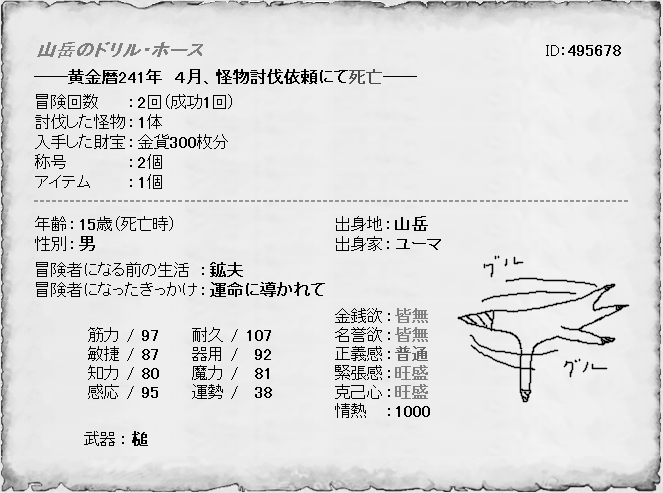 山岳のドリル・ホース ID:495678
――黄金暦241年 4月、怪物討伐依頼にて死亡――
冒険回数 :2回(成功1回)
討伐した怪物:1体
入手した財宝:金貨300枚分
称号 :2個
アイテム :1個
年齢:15歳(死亡時) 出身地:山岳
性別:男 出身家:ユーマ
冒険者になる前の生活 :鉱夫
冒険者になったきっかけ:運命に導かれて
筋力 / 97 耐久 / 107
敏捷 / 87 器用 / 92
知力 / 80 魔力 / 81
感応 / 95 運勢 / 38
金銭欲:皆無
名誉欲:皆無
正義感:普通
緊張感:旺盛
克己心:旺盛
情熱 :1000
武器:槌
グル
グル